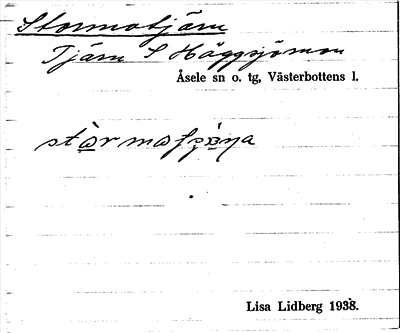 Stormotjärn
Tjärn S Häggsjömon
Åsele sn o. tg, Västerbottens l.
Lisa Lidberg 1938.